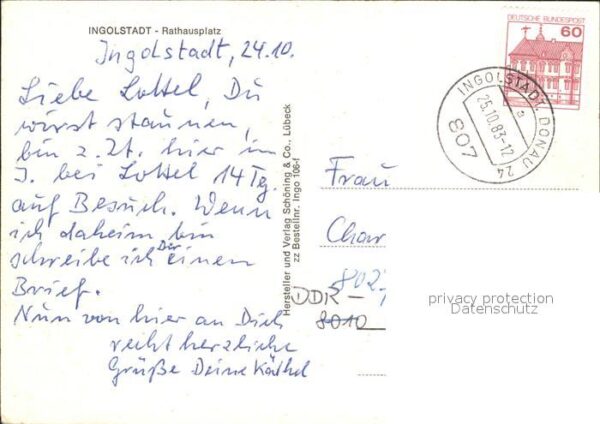 INGOLSTADT - Rathausplatz
Ingolstadt, 24.10.
Liebe Lottel, Du
wirst staunen,
bin z.Zt. hier in
J. bei Lottel 14 Tg.
auf Besuch. Wenn
ich daheim bin
schreibe ich Dir einen
Brief.
Nun von hier an Dich
recht herzliche
Grüße Deine Käthel
Hersteller und Verlag Schöning & Co., Lübeck
zz Bestellnr. Ingo 106-f
DEUTSCHE BUNDESPOST
60
INGOLSTADT, DONAU 24
a
25.10.83-12
807
Frau
Char
802
DDR -
8010
privacy protection
Datenschutz